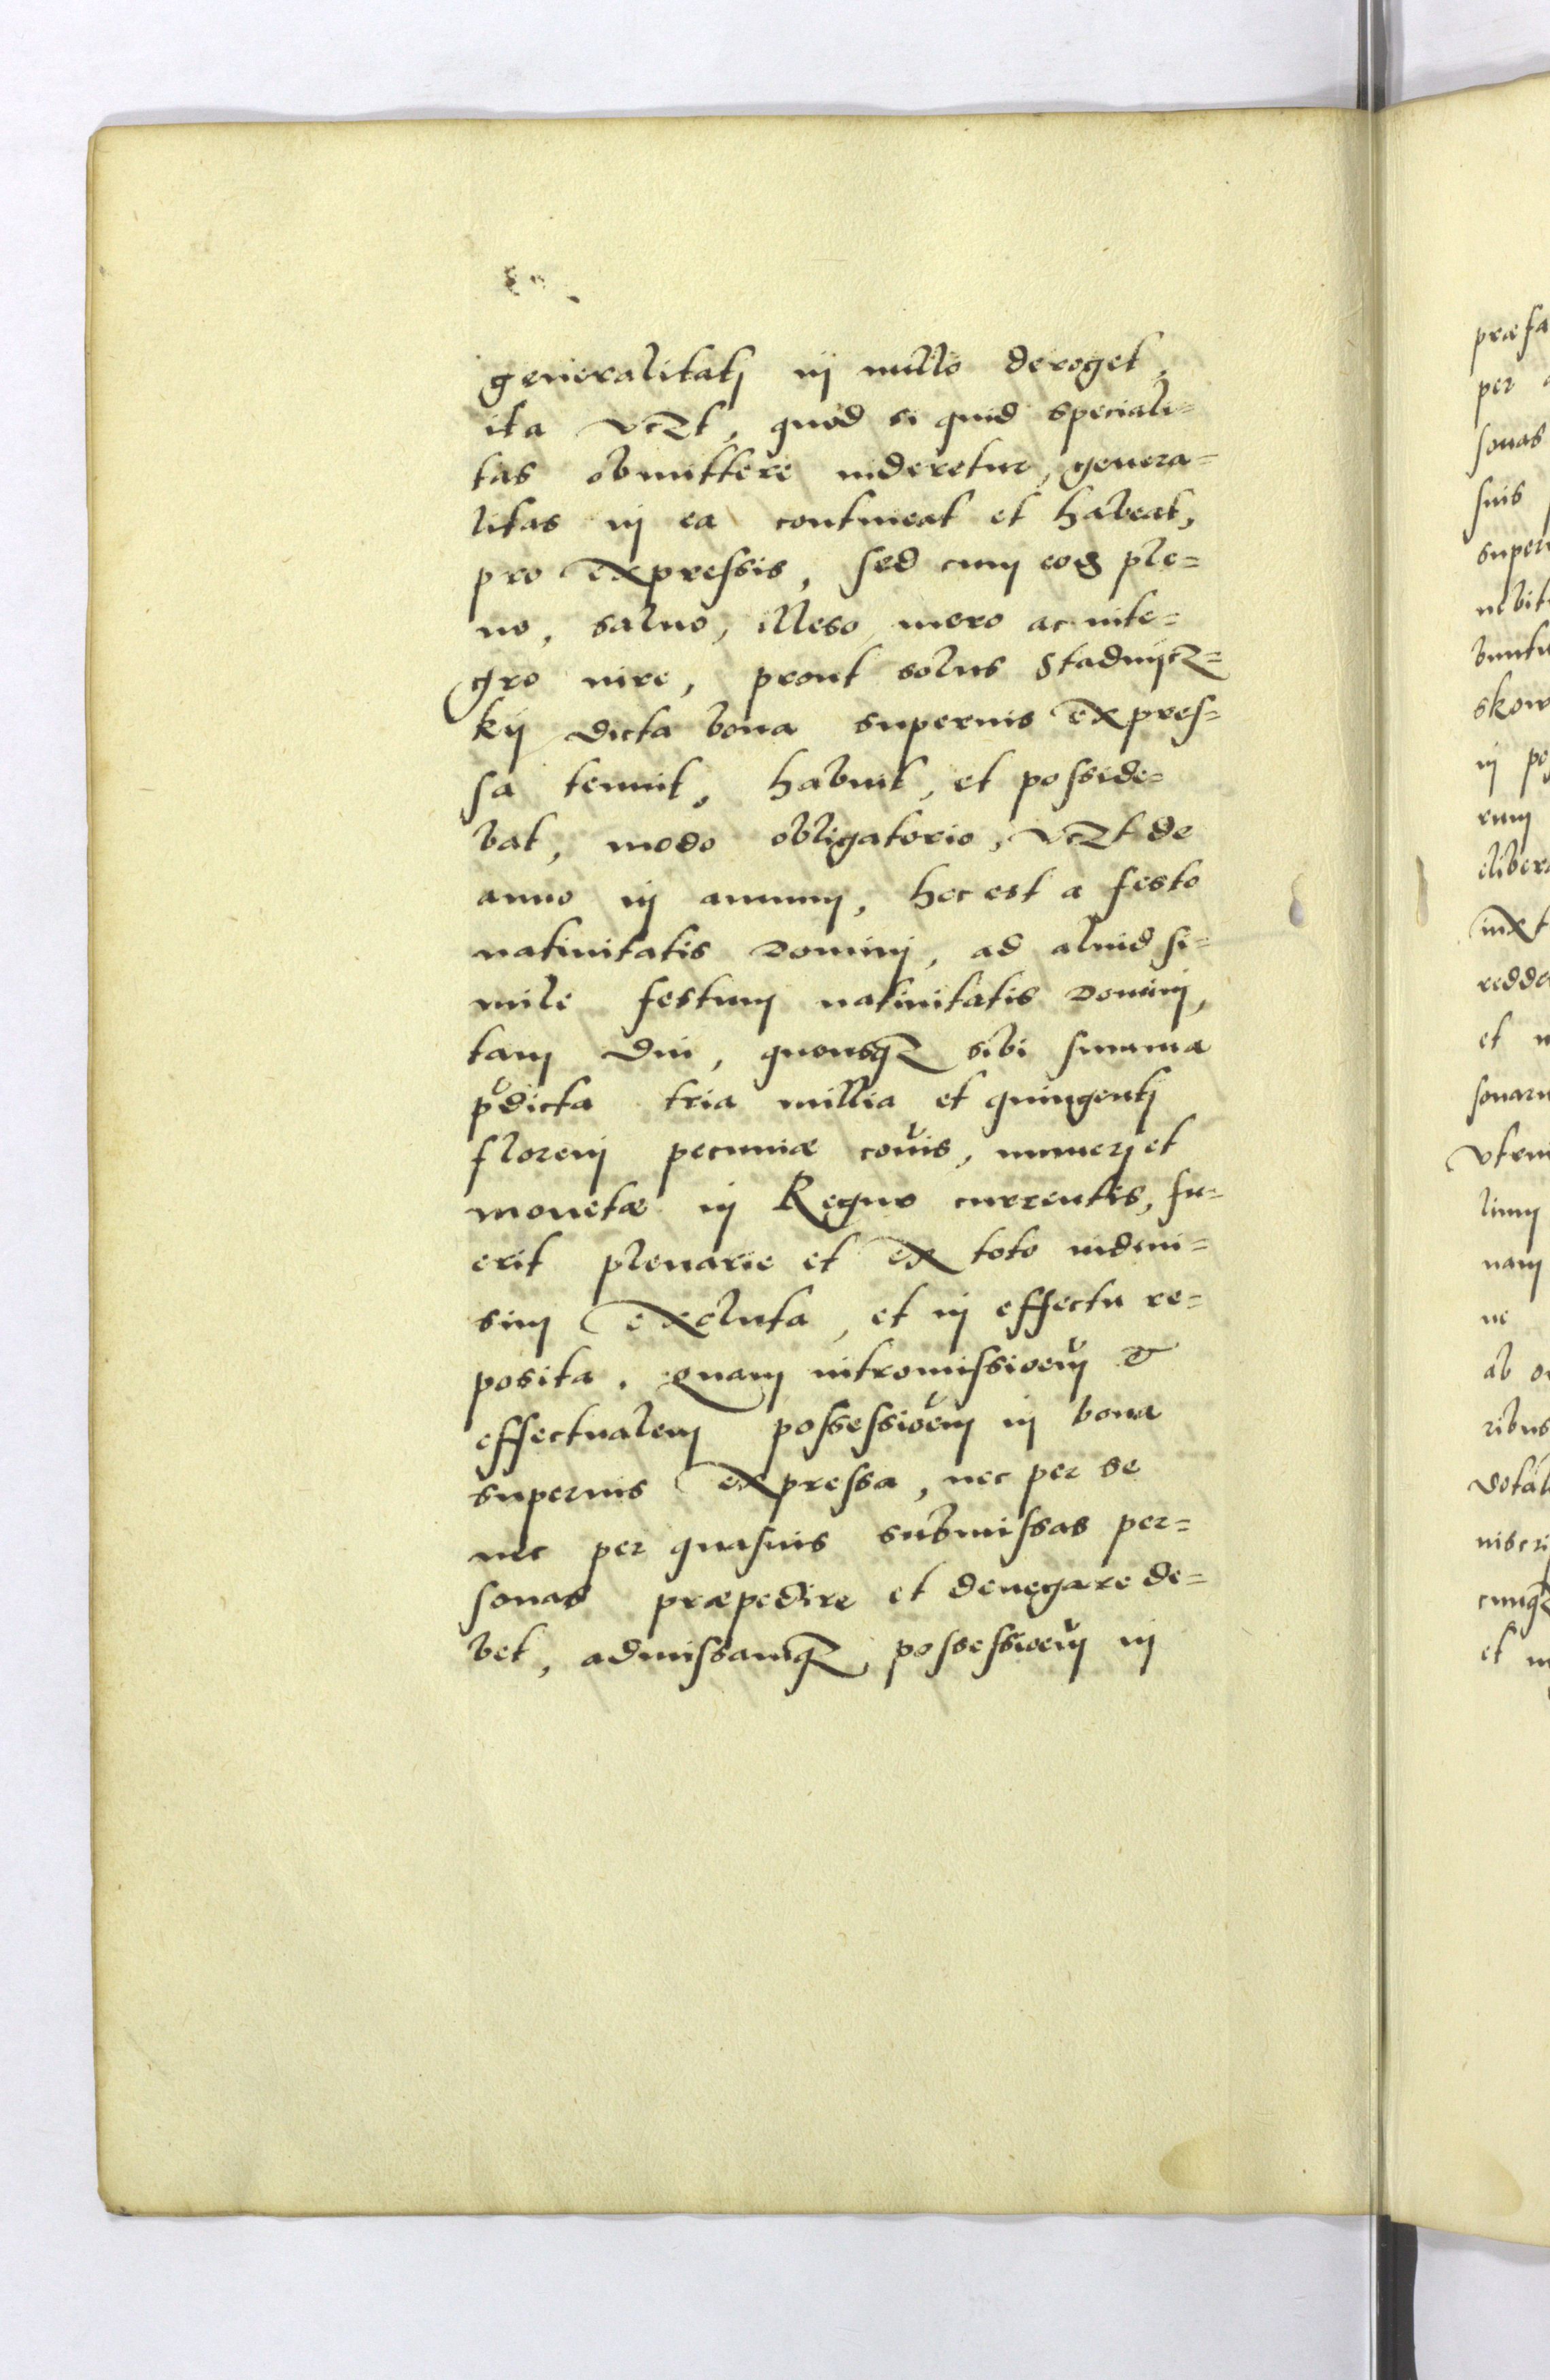 generalitatj in nullo deroget,
ita vczt, quod si quid speciali=
tas obmittere uideretur, genera=
litas in ea contineat et habeat,
pro expressis, sed cum eod ple=
no, saluo, illeso, mero ac inte=
gro iure, prout solus Stadnijcz=
kij dicta bona superius expres=
sa tenuit, habuit, et posside=
bat, modo obligatorio, vczt de
anno in annum, hoc est a festo
natiuitatis Domini, ad aliud si=
mile festum natiuitatis Domini,
tam diu, quousq sibi summa
pdicta tria millia et quingentj
florenj pecuniæ cois, numerj et
monetæ in Regno currentis, fu=
erit plenarie et ex toto indiui=
sim exoluta, et in effectu re=
posita. Quam intromissioem &
effectualem possessioem in bona
superius expressa, nec per se
nec per quasuis submissas per=
sonas præpedire et denegare de=
bet, admissamq possessioem in
præfa
per
sonas
suis
superi
nebit
buntu
skow
in po
rum
elibera
iuxt
redde
et
sonaru
vtru
linm
nam
ne
ab o
ribus
Dotal
inscri
cunq
et